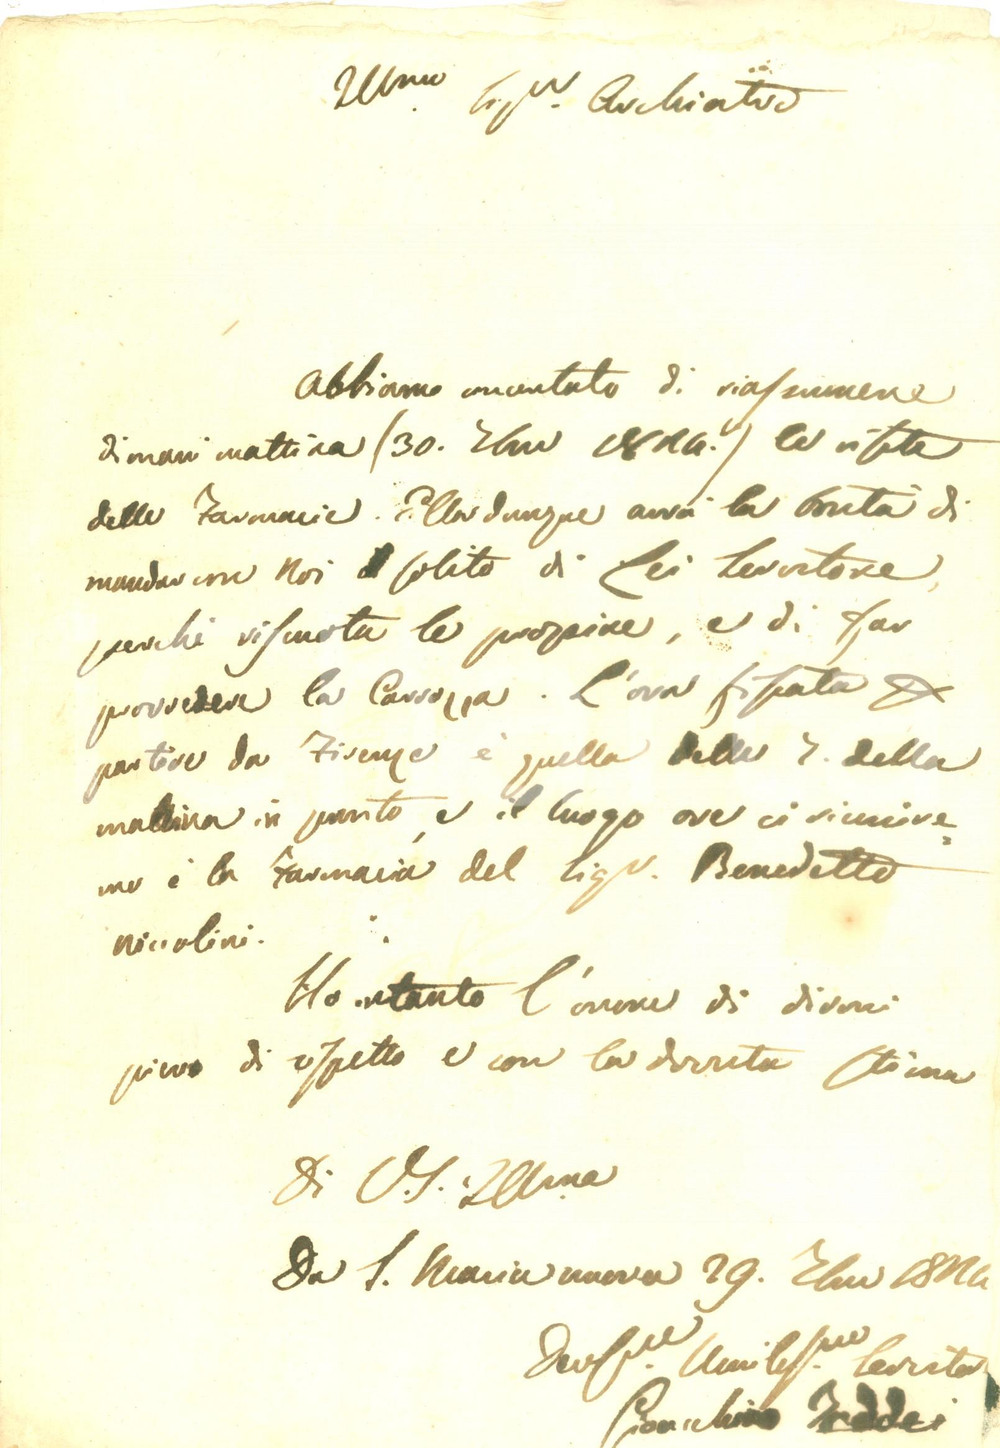 Illmo Sigr. Archiatro
Abbiamo concertato di riassumere
dimani mattina (30. 7bre 1824.) la visita
delle Farmacie. Ella dunque avrà la bontà di
mandar con Noi il solito di Lei Servitore,
perché riscuota le propine, e di far
provvedere la Carrozza. L'ora fissata per
partire da Firenze è quella delle 7. della
mattina in punto, e il luogo ove ci riunire=
mo è la Farmacia del Sigr. Benedetto
Niccolini.
Ho intanto l'onore di dirmi
pieno di rispetto e con la dovuta stima
Di V.S. Illma
Da S. Maria nuova 29. 7bre 1824
Devmo. Umilissmo Servitor
Gioacchino Taddei